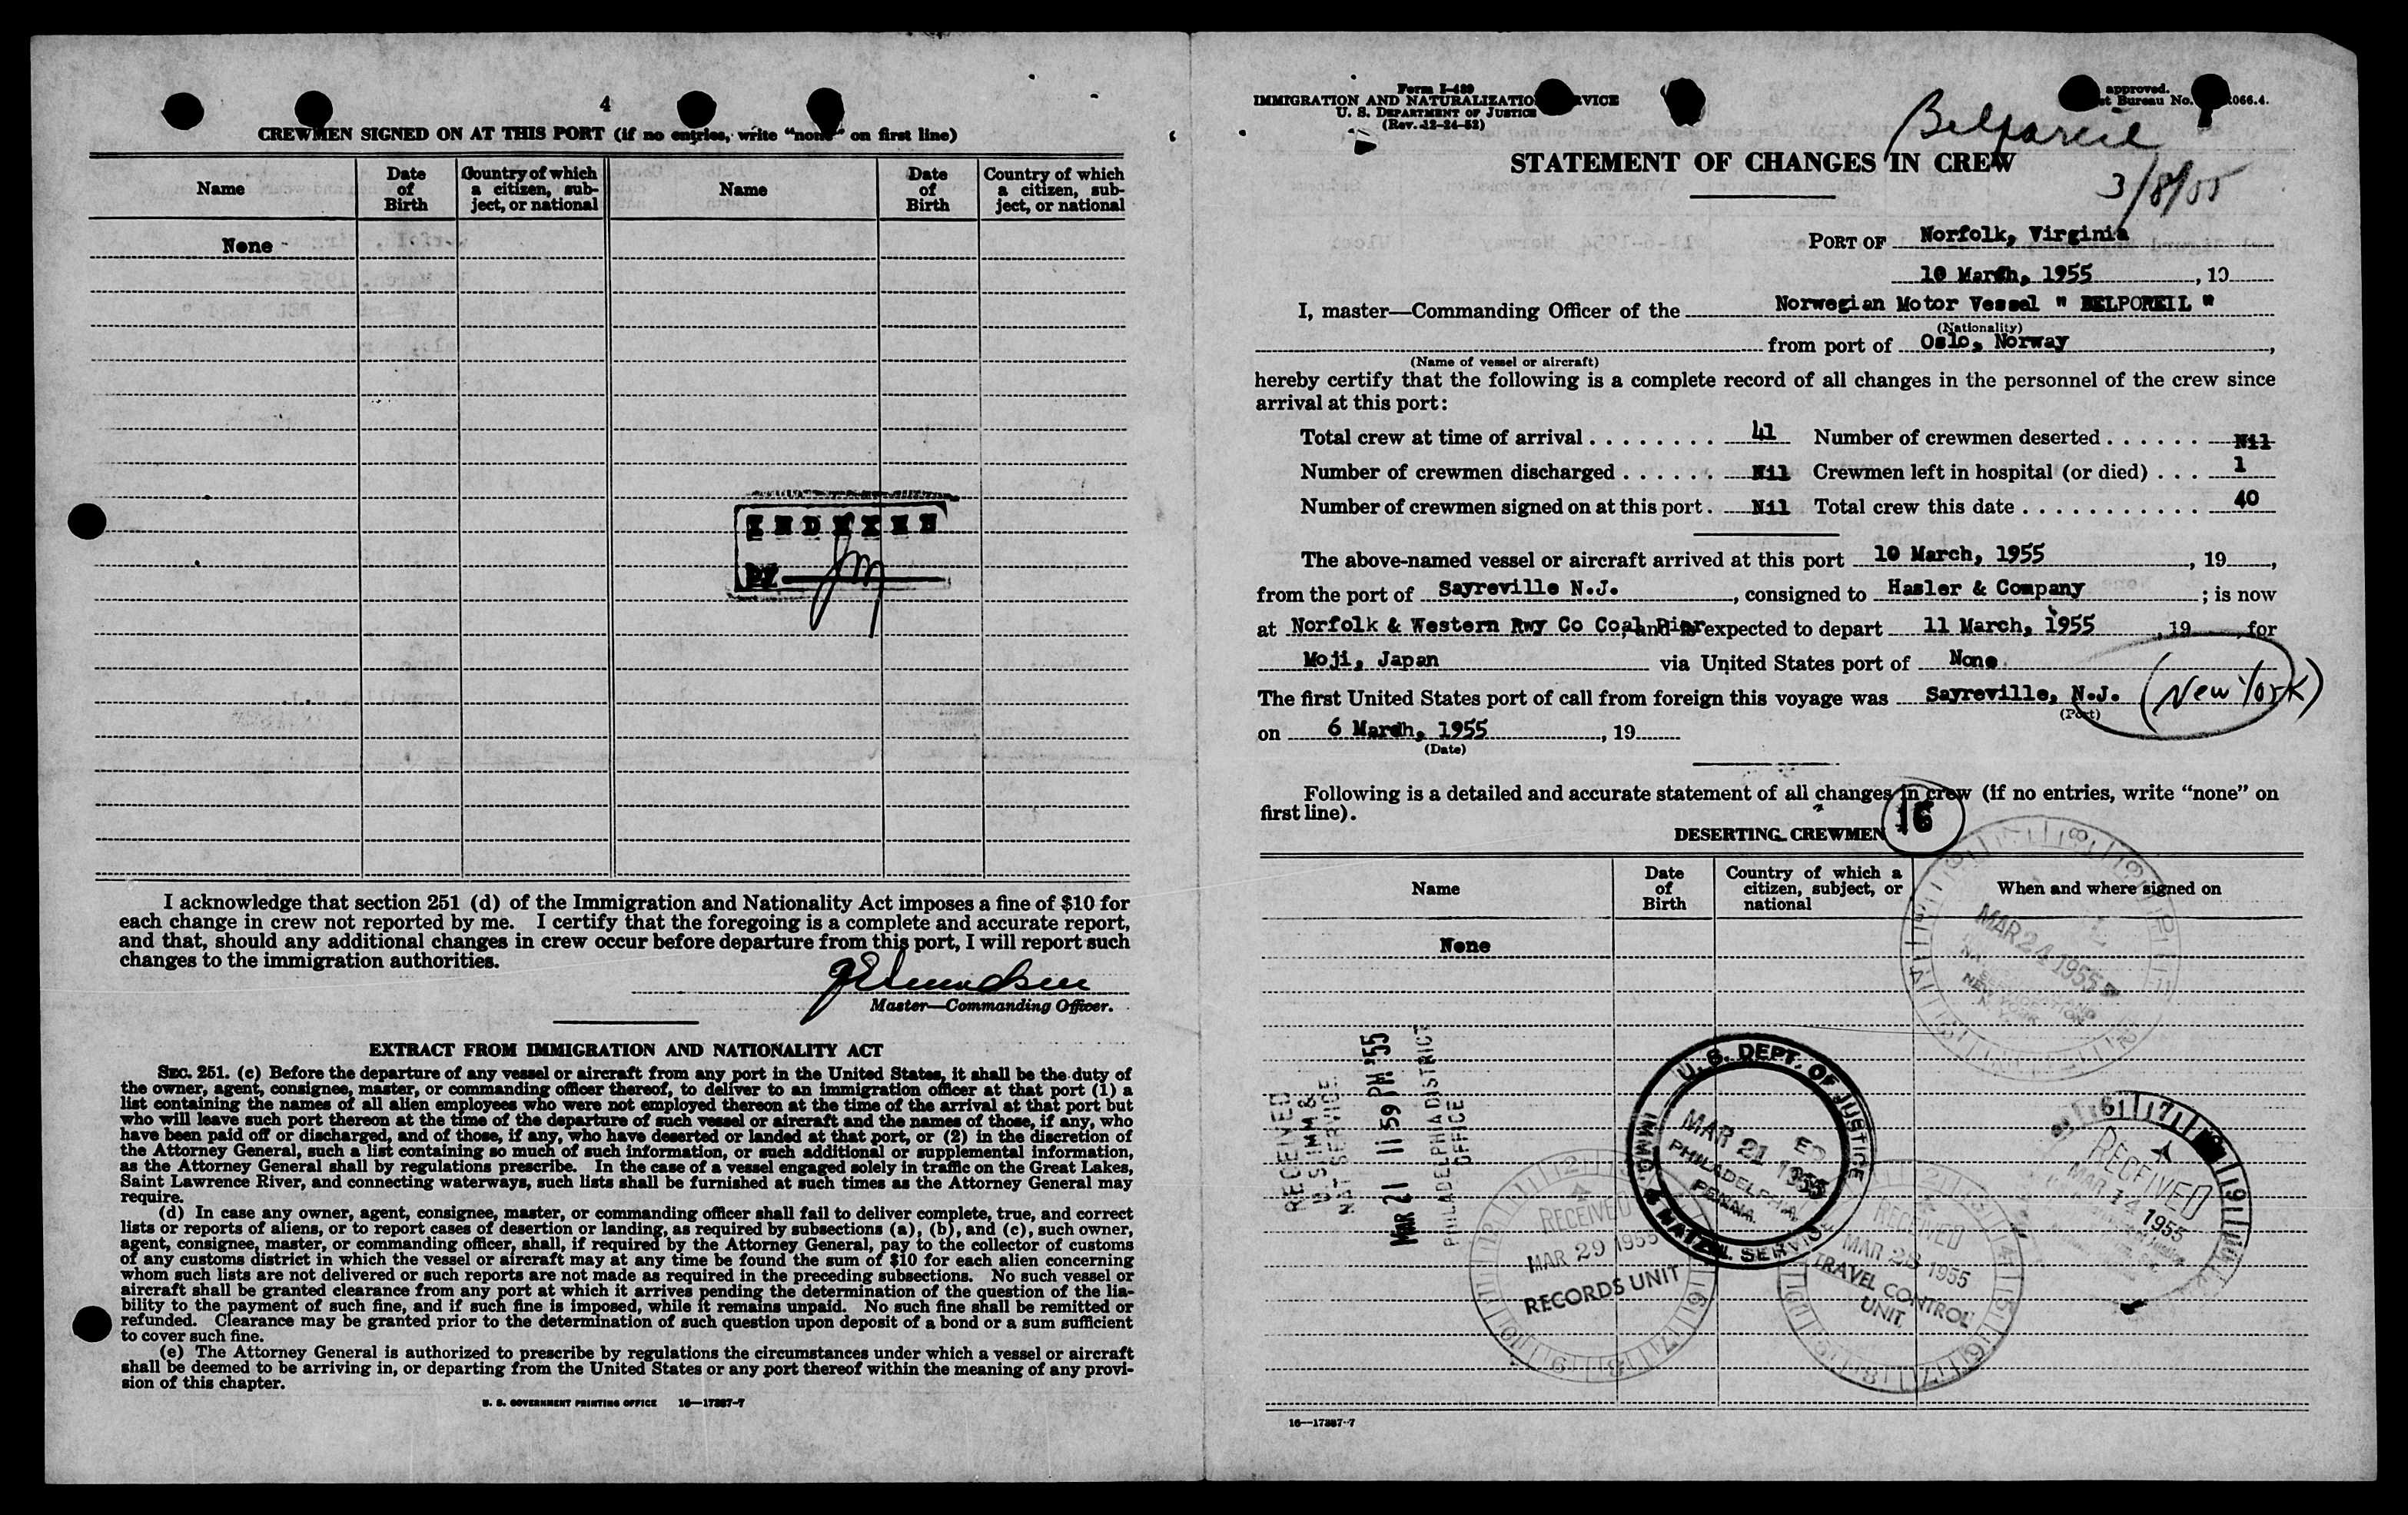 4
CREWMEN SIGNED ON AT THIS PORT (if no entries, write "none" on first line)
Name
Date of Birth
Country of which a citizen, subject, or national
Name
Date of Birth
Country of which a citizen, subject, or national
None -
INDEXED
BY
I acknowledge that section 251 (d) of the Immigration and Nationality Act imposes a fine of $10 for
each change in crew not reported by me. I certify that the foregoing is a complete and accurate report,
and that, should any additional changes in crew occur before departure from this port, I will report such
changes to the immigration authorities.
Master—Commanding Officer.
EXTRACT FROM IMMIGRATION AND NATIONALITY ACT
SEC. 251. (c) Before the departure of any vessel or aircraft from any port in the United States, it shall be the duty of
the owner, agent, consignee, master, or commanding officer thereof, to deliver to an immigration officer at that port (1) a
list containing the names of all alien employees who were not employed thereon at the time of the arrival at that port but
who will leave such port thereon at the time of the departure of such vessel or aircraft and the names of those, if any, who
have been paid off or discharged, and of those, if any, who have deserted or landed at that port, or (2) in the discretion of
the Attorney General, such a list containing so much of such information, or such additional or supplemental information,
as the Attorney General shall by regulations prescribe. In the case of a vessel engaged solely in traffic on the Great Lakes,
Saint Lawrence River, and connecting waterways, such lists shall be furnished at such times as the Attorney General may
require.
(d) In case any owner, agent, consignee, master, or commanding officer shall fail to deliver complete, true, and correct
lists or reports of aliens, or to report cases of desertion or landing, as required by subsections (a), (b), and (c), such owner,
agent, consignee, master, or commanding officer, shall, if required by the Attorney General, pay to the collector of customs
of any customs district in which the vessel or aircraft may at any time be found the sum of $10 for each alien concerning
whom such lists are not delivered or such reports are not made as required in the preceding subsections. No such vessel or
aircraft shall be granted clearance from any port at which it arrives pending the determination of the question of the lia-
bility to the payment of such fine, and if such fine is imposed, while it remains unpaid. No such fine shall be remitted or
refunded. Clearance may be granted prior to the determination of such question upon deposit of a bond or a sum sufficient
to cover such fine.
(e) The Attorney General is authorized to prescribe by regulations the circumstances under which a vessel or aircraft
shall be deemed to be arriving in, or departing from the United States or any port thereof within the meaning of any provi-
sion of this chapter.
U. S. GOVERNMENT PRINTING OFFICE 16—17387-7
Form I-489
IMMIGRATION AND NATURALIZATIO VICE
U. S. DEPARTMENT OF JUSTICE
(Rev. 12-24-52)
approved.
t Bureau No. 066.4.
Belpareil
3/8/55
STATEMENT OF CHANGES IN CREW
PORT OF Norfolk, Virginia
10 March, 1955, 19
I, master—Commanding Officer of the Norwegian Motor Vessel " BELPOREIL "
(Nationality)
from port of Oslo, Norway,
(Name of vessel or aircraft)
hereby certify that the following is a complete record of all changes in the personnel of the crew since
arrival at this port:
Total crew at time of arrival . . . . . . . . 41 Number of crewmen deserted . . . . . . Nil
Number of crewmen discharged . . . . . . Nil Crewmen left in hospital (or died) . . . 1
Number of crewmen signed on at this port . Nil Total crew this date . . . . . . . . . . . 40
The above-named vessel or aircraft arrived at this port 10 March, 1955, 19,
from the port of Sayreville N.J., consigned to Hasler & Company; is now
at Norfolk & Western Rwy Co Coal Pier, and is expected to depart 11 March, 1955, 19 for
Moji, Japan via United States port of None
The first United States port of call from foreign this voyage was Sayreville, N.J. (New York)
(Port)
on 6 March, 1955, 19
(Date)
Following is a detailed and accurate statement of all changes in crew (if no entries, write "none" on
first line).
DESERTING CREWMEN 16
Name
Date of Birth
Country of which a citizen, subject, or national
When and where signed on
None
MAR 24 1955
NEW YORK
RECEIVED
U S IMM &
NAT SERVICE
MAR 21 11 59 PM '55
PHILADELPHIA DISTRICT
OFFICE
U. S. DEPT. OF JUSTICE
MAR 21 1955
PHILADELPHIA
PENNA.
IMMG. & NATZ'N. SERVICE
RECEIVED
MAR 14 1955
RECEIVED
MAR 29 1955
RECORDS UNIT
RECEIVED
MAR 1955
TRAVEL CONTROL
UNIT
16—17387-7